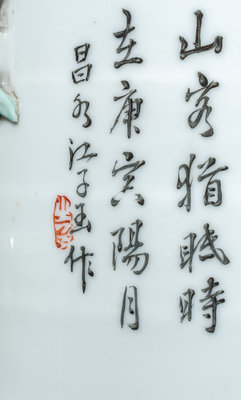 山客猶眠時
在庚寅陽月
昌水江子玉作